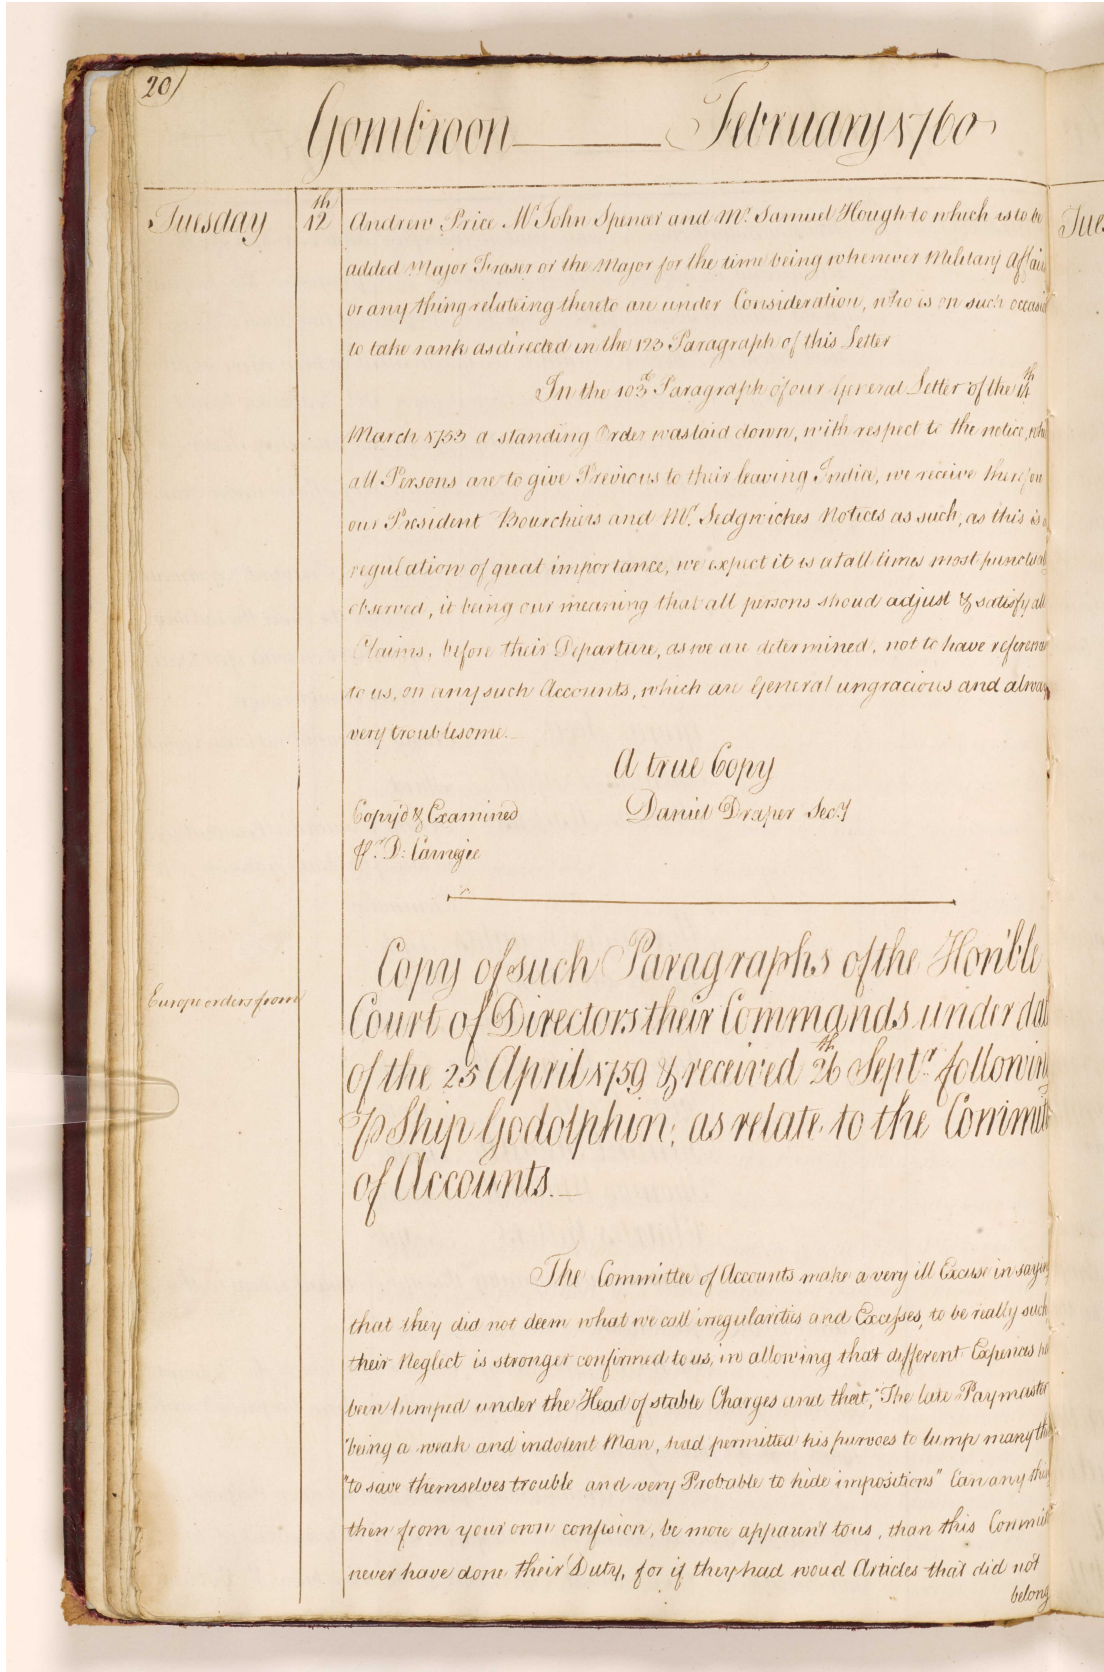 20
Gombroon February 1760
Tuesday 12th Andrew Price Mr John Spencer and Mr. Samuel Hough to which is to be
added Major Fraser or the Major for the time being whenever Military Affairs
or any thing relateing thereto are under Consideration, who is on such occasi
to take rank as directed in the 123 Paragraph of this Letter
In the 103d Paragraph of our General Letter of the
March 1753 a standing Order was laid down, with respect to the notice,
all Persons are to give Previous to their leaving India, we receive therefore
our President Bourchiers and Mr. Sedgwickes Notices as such, as this is a
regulation of great importance, we expect it is at all times most punctual
observed, it being our meaning that all persons shoud adjust & satisfy all
Claims, before their Departure, as we are determined, not to have reference
to us, on any such Accounts, which are General ungracious and always
very troublesome.
A true Copy
Copy'd & Examined Daniel Draper Secy
Pr. D: Carnegie
Europe orders from
Copy of such Paragraphs of the Hon'ble
Court of Directors their Commands under dat
of the 25 April 1759 & received 26th Septr. following
P Ship Godolphin, as relate to the Committe
of Accounts.
The Committee of Accounts make a very ill Excuse in saying
that they did not deem what we call irregularities and Excesses, to be really such
their Neglect is stronger confirmed to us, in allowing that different Expences
been lumped under the Head of stable Charges and that, "The late Paymaster
"being a weak and indolent Man, had permitted his purvoes to lump many
"to save themselves trouble and very Probable to hide impositions" Can any
then from your own confision, be more apparent to us, than this Committe
never have done their Duty, for if they had woud Articles that did not
belong